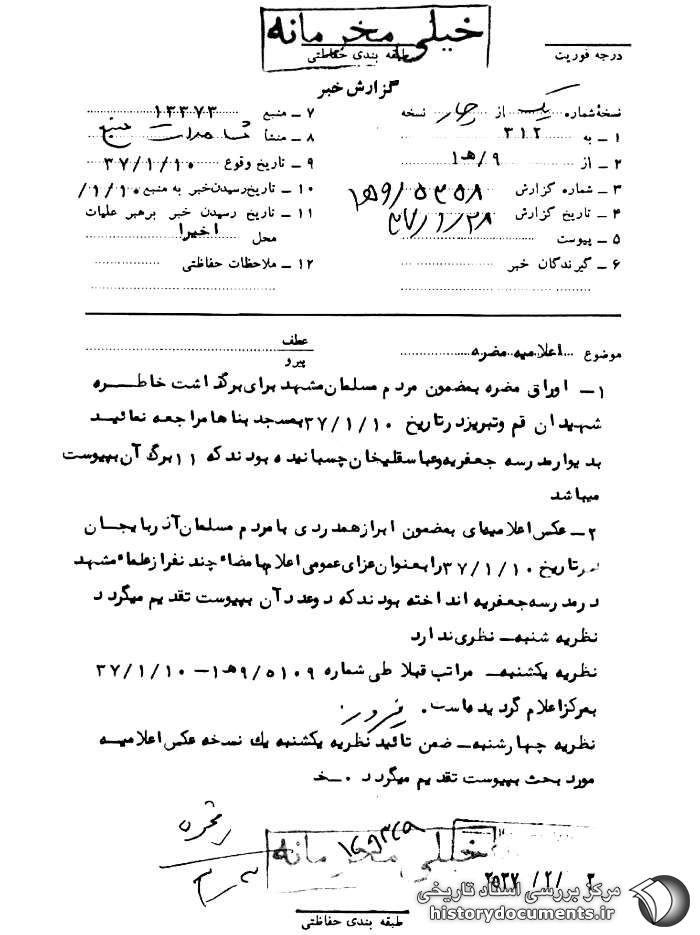 خیلی محرمانه
درجه فوریت
طبقه بندی حفاظتی
گزارش خبر
نسخهٔ شماره یک از چهار نسخه
۱ ـ به ۳۱۲
۲ ـ از ۹/هـ۱
۳ ـ شماره گزارش ۹/۵۳۵۸هـ۱
۴ ـ تاریخ گزارش ۳۷/۱/۲۸
۵ ـ پیوست
۶ ـ گیرندگان خبر
۷ ـ منبع ۱۳۳۷۳
۸ ـ منشأ مشاهدات منبع
۹ ـ تاریخ وقوع ۳۷/۱/۱۰
۱۰ ـ تاریخ رسیدن خبر به منبع ۱/۱۰/
۱۱ ـ تاریخ رسیدن خبر برهبر عملیات
محل اخیرا
۱۲ ـ ملاحظات حفاظتی
موضوع اعلامیه مضره
عطف
پیرو
۱ـ اوراق مضره بمضمون مردم مسلمان مشهد برای برگذاشت خاطـــره
شهیدان قم و تبریز در تاریخ ۳۷/۱/۱۰ بمسجد بناها مراجعه نمائید
بدیوار مدرسه جعفریه و عباسقلیخان چسبانیده بودند که ۱۱ برگ آن بپیوست
میباشد
۲ـ عکس اعلامیه‌ای بمضمون ابراز همدردی با مردم مسلمان آذربایجان
در تاریخ ۳۷/۱/۱۰ را بعنوان عزای عمومی اعلام بامضاء چند نفر از علماء مشهد
در مدرسه جعفریه انداخته بودند که دو عدد آن بپیوست تقدیم میگردد
نظریه شنبه ـ نظری ندارد
نظریه یکشنبه ـ مراتب قبلا طی شماره ۹/۵۱۰۹هـ۱ ـ ۳۷/۱/۱۰
بمرکز اعلام گردیده است.
نظریه چهارشنبه ـ ضمن تائید نظریه یکشنبه یک نسخه عکس اعلامیـــه
مورد بحث بپیوست تقدیم میگردد ۰ ـخـ
خیلی محرمانه
۲۵۳۷/۲/۳
طبقه بندی حفاظتی
مرکز بررسی اسناد تاریخی
historydocuments.ir